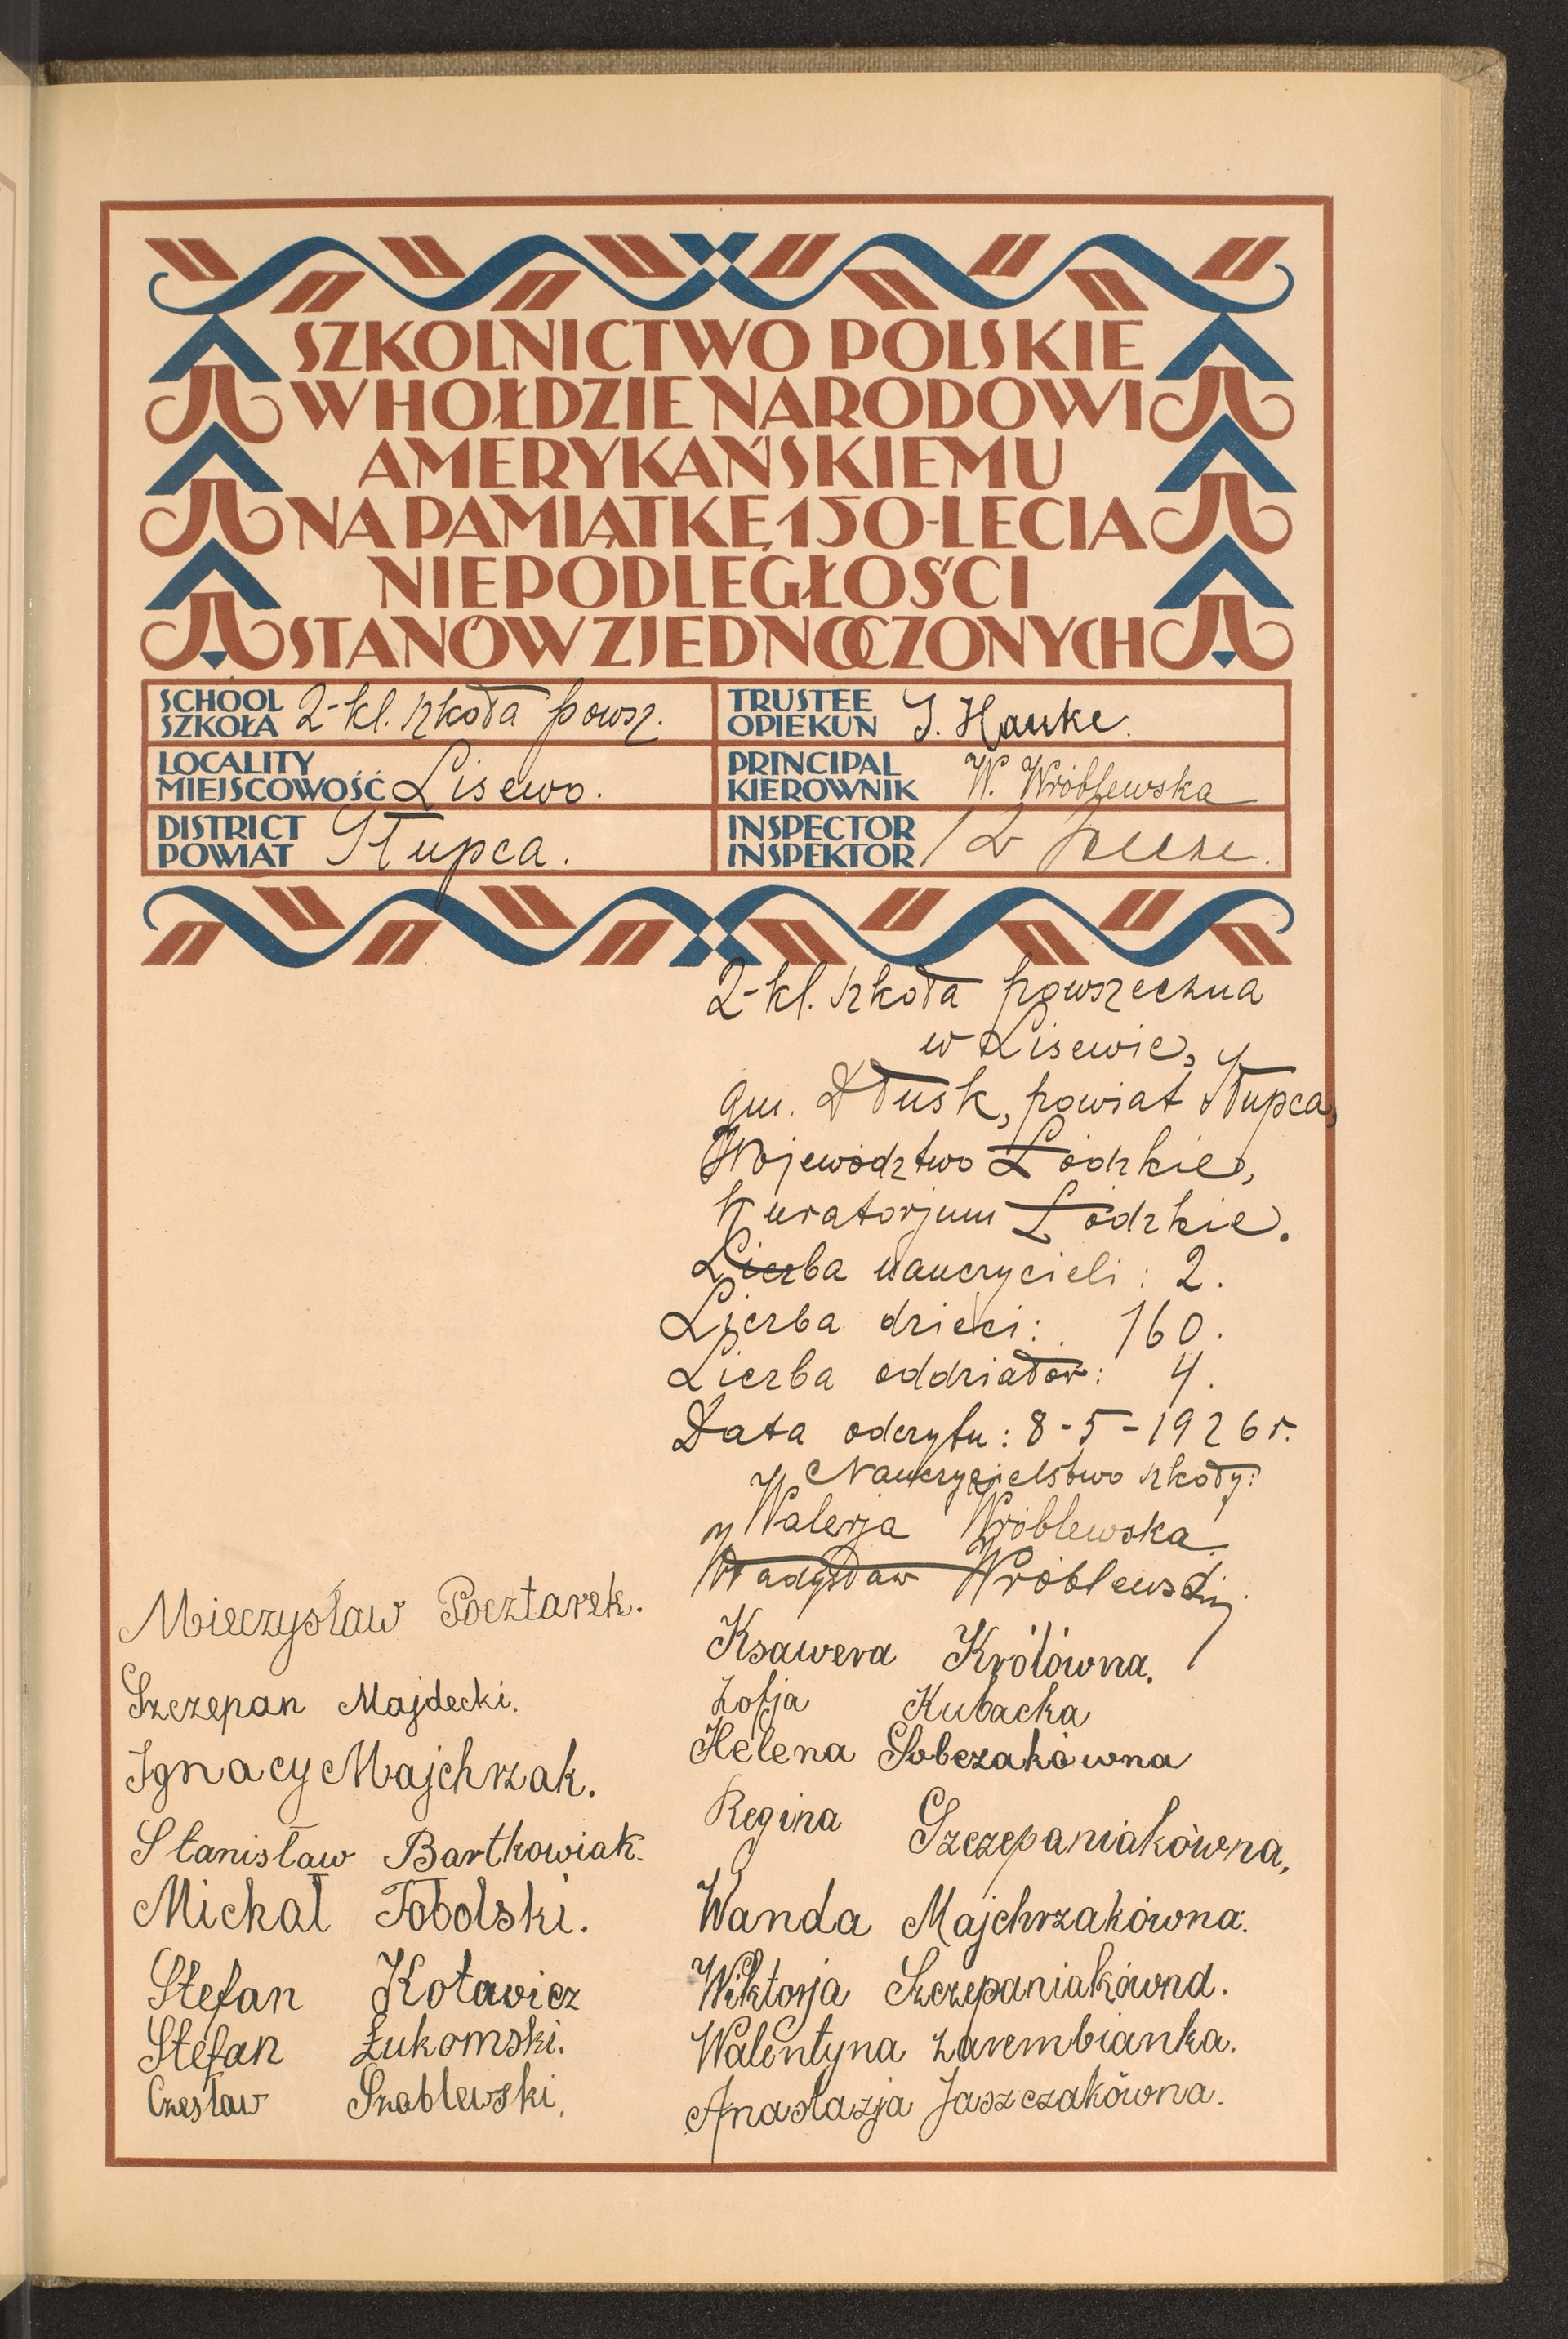 SZKOLNICTWO POLSKIE
W HOŁDZIE NARODOWI
AMERYKAŃSKIEMU
NA PAMIĄTKĘ 150-LECIA
NIEPODLEGŁOŚCI
STANÓW ZJEDNOCZONYCH
SCHOOL
SZKOŁA 2-kl. szkoła powsz.
TRUSTEE
OPIEKUN J. Hauke.
LOCALITY
MIEJSCOWOŚĆ Lisewo.
PRINCIPAL
KIEROWNIK W. Wróblewska
DISTRICT
POWIAT Słupca.
INSPECTOR
INSPEKTOR
2-kl. szkoła powszechna
w Lisewie,
gm. Dłusk, powiat Słupca,
Województwo Łódzkie,
Kuratorjum Łódzkie.
Liczba nauczycieli: 2.
Liczba dzieci: 160.
Liczba oddziałów: 4.
Data odczytu: 8-5-1926 r.
Nauczycielstwo szkoły:
Walerja Wróblewska
Władysław Wróblewski
Mieczysław Pocztarek.
Szczepan Majdecki.
Ignacy Majchrzak.
Stanisław Bartkowiak.
Michał Tobolski.
Stefan Kotawicz
Stefan Łukomski.
Czesław Szablewski.
Ksawera Królówna.
Zofja Kubacka
Helena Sobczakówna
Regina Szczepaniakówna,
Wanda Majchrzakówna.
Wiktorja Szczepaniakówna.
Walentyna Zarembianka.
Anastazja Jaszczakówna.